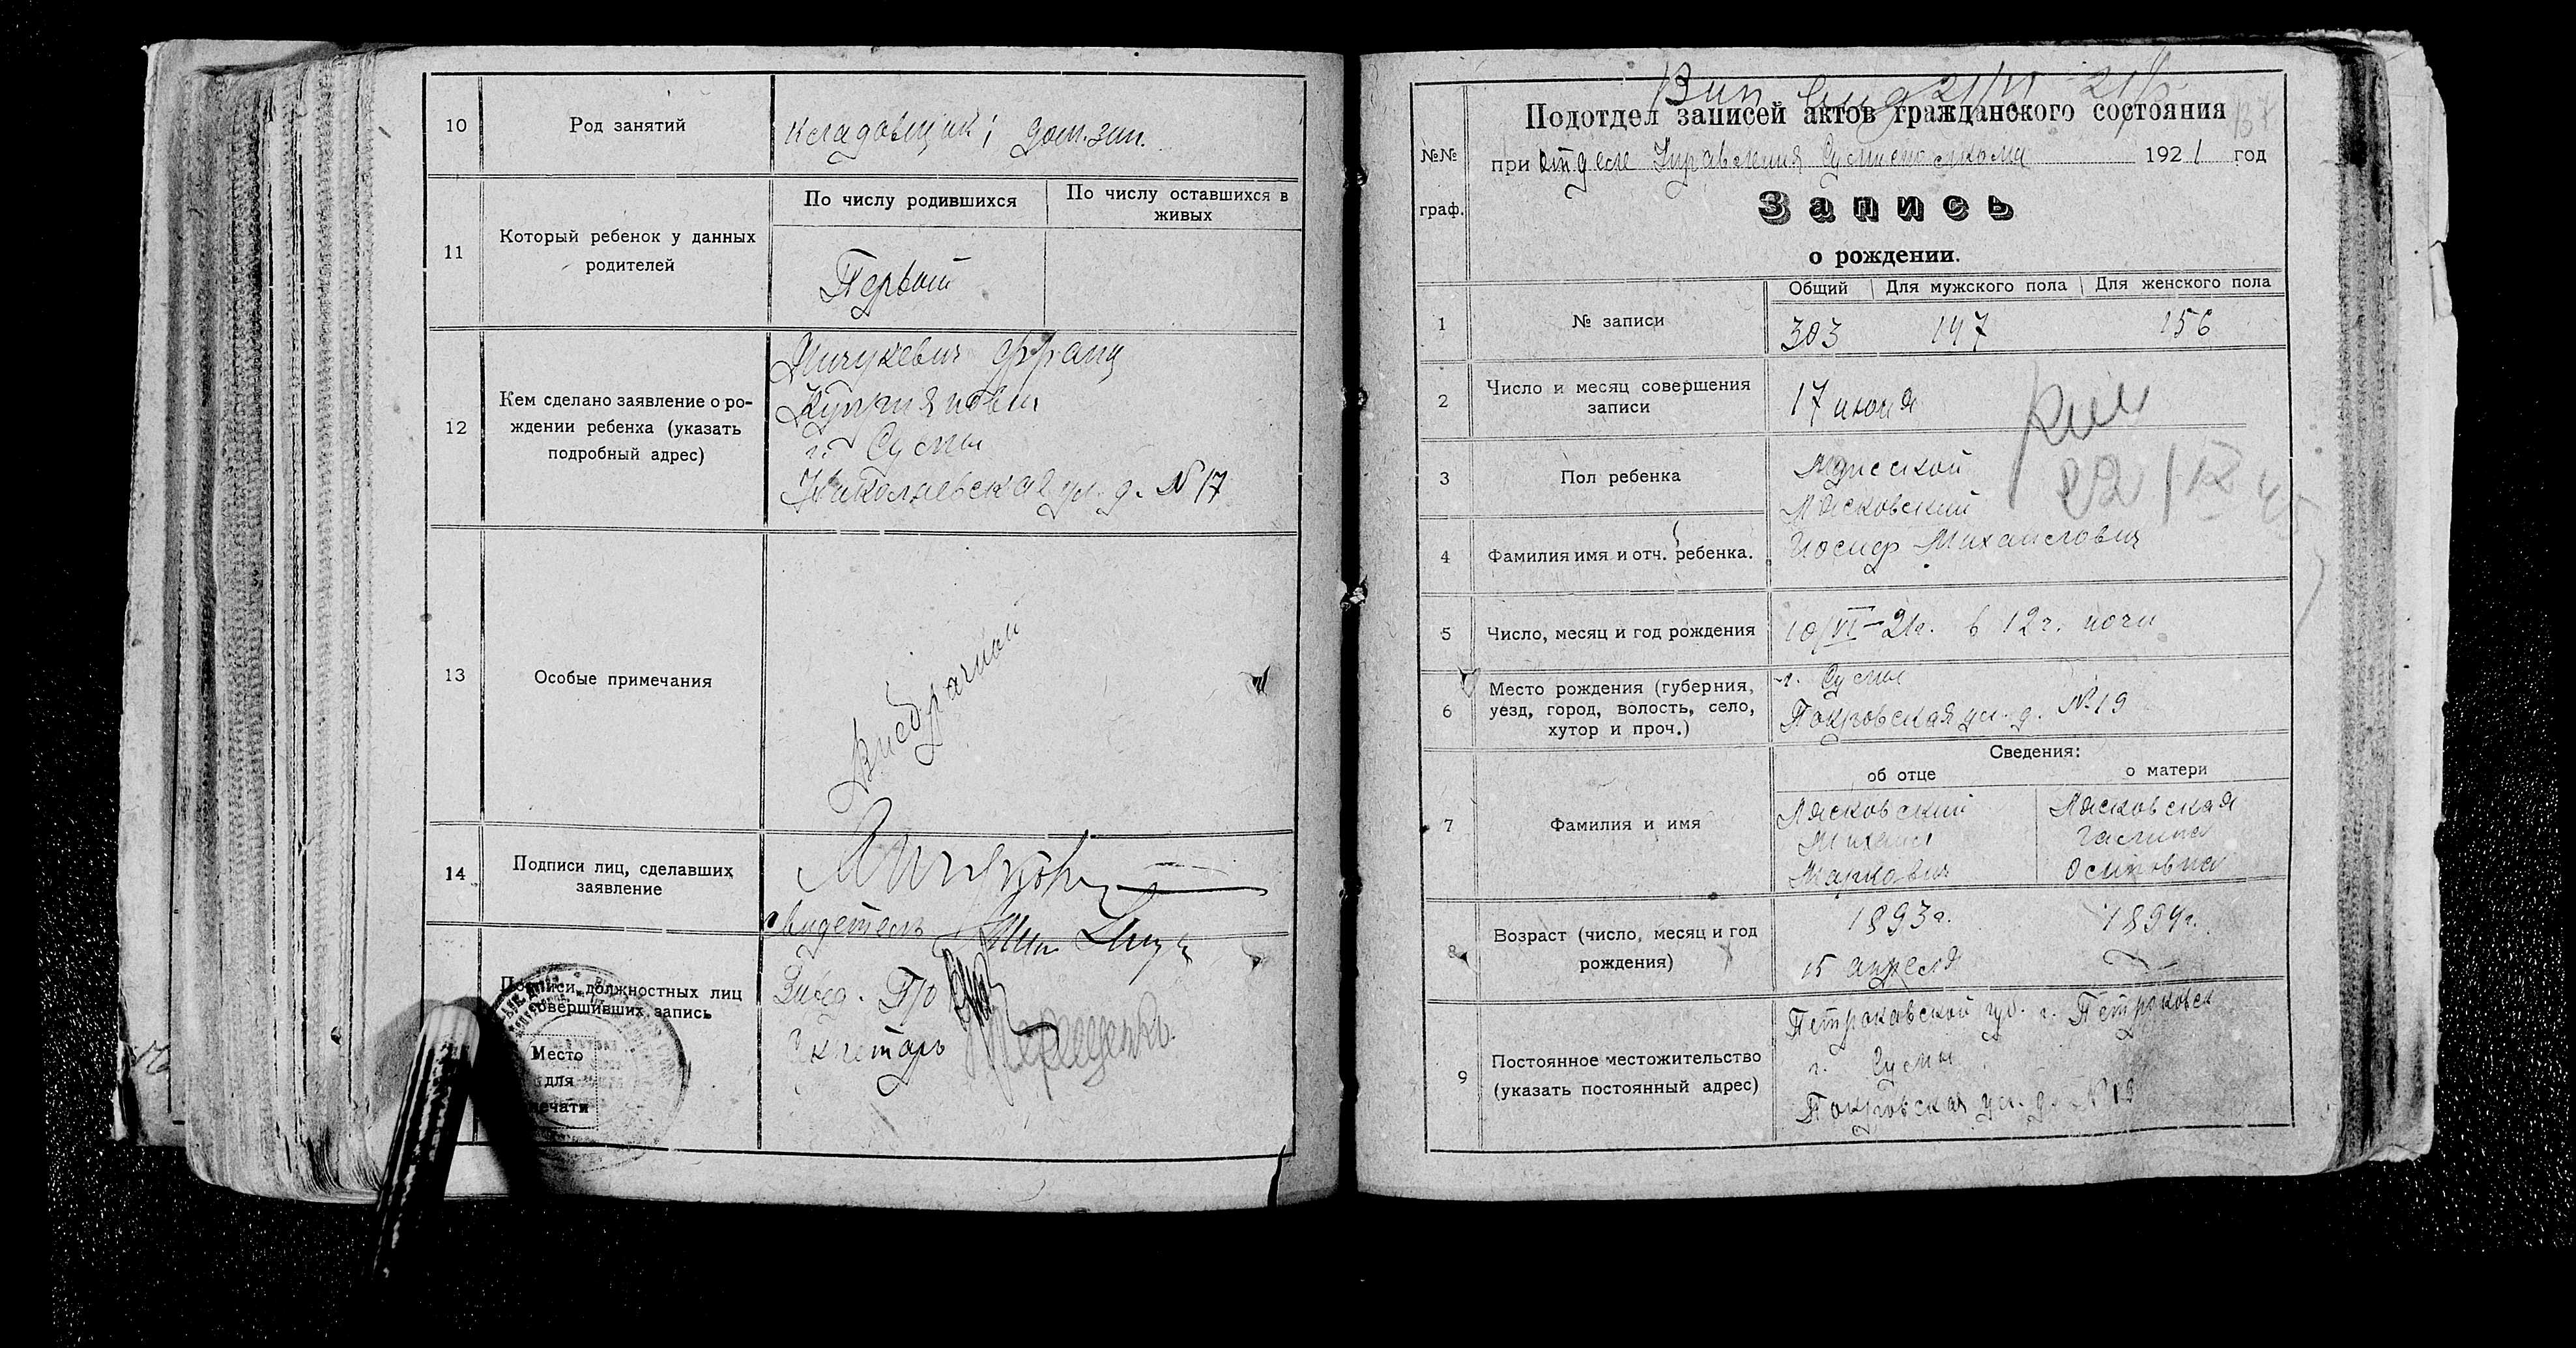 10
Род занятий
кладовщик; дом. зан.
11
Который ребенок у данных
родителей
По числу родившихся
По числу оставшихся в
живых
Первый
12
Кем сделано заявление о ро-
ждении ребенка (указать
подробный адрес)
Франц
г. Сумы
Николаевская ул. д. №17
13
Особые примечания
Внебрачный
14
Подписи лиц, сделавших
заявление
свидетель
Подписи должностных лиц
совершивших запись
Место
для
печати
Завед. П/о
Секретарь
№№
граф.
Подотдел записей актов гражданского состояния
при отделе Управления 1921 год
Запись
о рождении.
1
№ записи
Общий
Для мужского пола
Для женского пола
303 147 156
2
Число и месяц совершения
записи
17 июня
3
Пол ребенка
Мужской
4
Фамилия имя и отч. ребенка.
Лясковский
Иосиф Михайлович
5
Число, месяц и год рождения
10/VI-21г. в 12 ч. ночи
6
Место рождения (губерния,
уезд, город, волость, село,
хутор и проч.)
г. Сумы
Покровская ул. д. №19
7
Фамилия и имя
Сведения:
об отце
о матери
Лясковский
Михаил
Маркович
Лясковская
Галина
Осиповна
8
Возраст (число, месяц и год
рождения)
1893г.
15 апреля
1899г.
9
Постоянное местожительство
(указать постоянный адрес)
Петроковской губ. г. Петроковск
г. Сумы
Покровская ул. д. №19